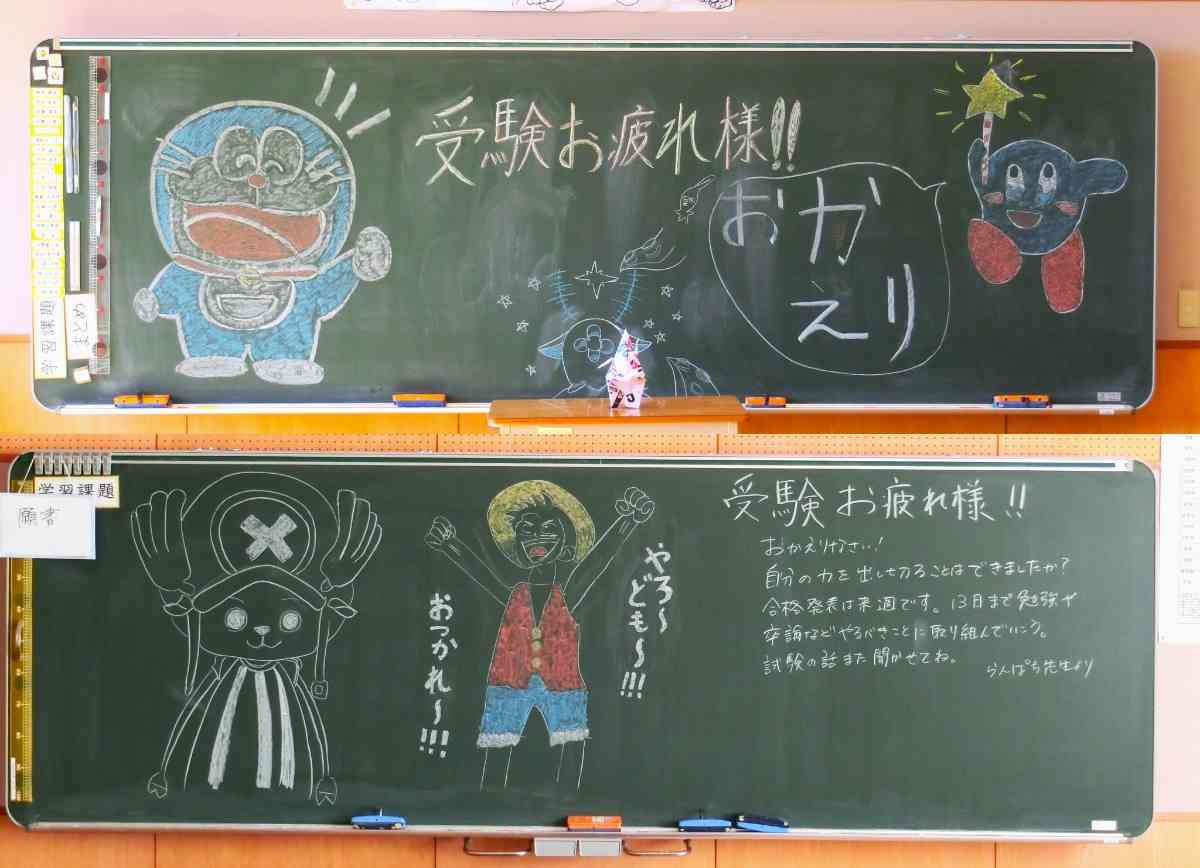 受験お疲れ様!!
おかえり
学習課題
まとめ
学習課題
願書
やろ〜
ども〜!!!
おつかれ〜!!!
受験お疲れ様!!
おかえりなさい!
自分の力を出し切ることはできましたか?
合格発表は来週です。13日まで勉強や
卒論などやるべきことに取り組んでいこう。
試験の話また聞かせてね。
らんぱち先生より